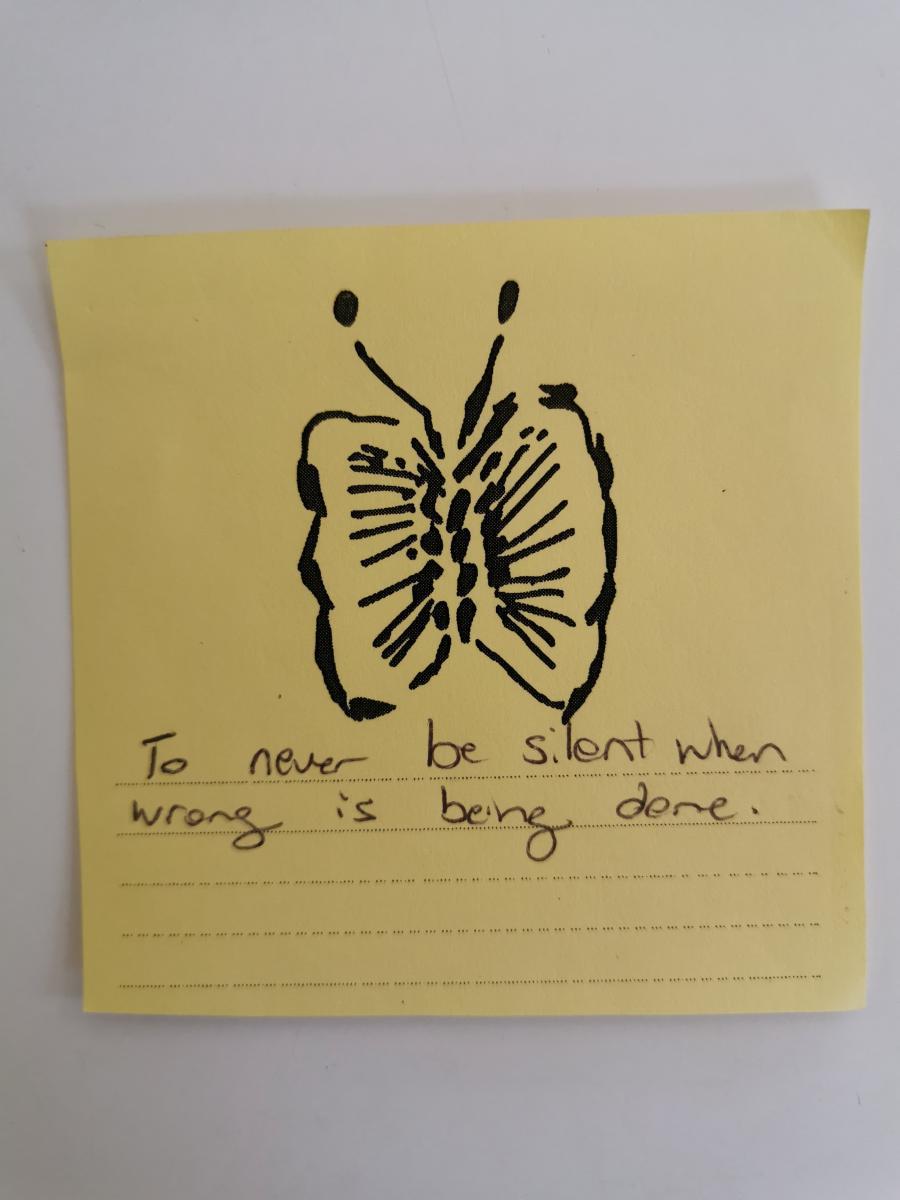 To never be silent when
wrong is being done.